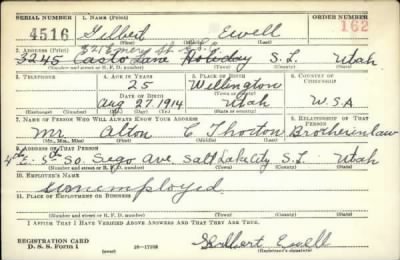 SERIAL NUMBER 1. NAME (Print) ORDER NUMBER
4516 Gilbert Ewell 162
(First) (Middle) (Last)
2. ADDRESS (Print)
3245 Casto Lane Holiday S.L. Utah
(Number and street or R. F. D. number) (Town) (County) (State)
3. TELEPHONE 4. AGE IN YEARS 5. PLACE OF BIRTH 6. COUNTRY OF CITIZENSHIP
25 Wellington
(Town or county)
DATE OF BIRTH
Aug 27 1914 Utah U.S.A
(Exchange) (Number) (Mo.) (Day) (Yr.) (State or country)
7. NAME OF PERSON WHO WILL ALWAYS KNOW YOUR ADDRESS 8. RELATIONSHIP OF THAT PERSON
Mr. Alton C Thorton Brotherinlaw
(Mr., Mrs., Miss) (First) (Middle) (Last)
9. ADDRESS OF THAT PERSON
4th E. 5th So. Sego Ave Salt Lake City S.L. Utah
(Number and street or R. F. D. number) (Town) (County) (State)
10. EMPLOYER'S NAME
unemployed
11. PLACE OF EMPLOYMENT OR BUSINESS
(Number and street or R. F. D. number) (Town) (County) (State)
I AFFIRM THAT I HAVE VERIFIED ABOVE ANSWERS AND THAT THEY ARE TRUE.
REGISTRATION CARD
D. S. S. Form 1 (over) Gilbert Ewell
(Registrant's signature)